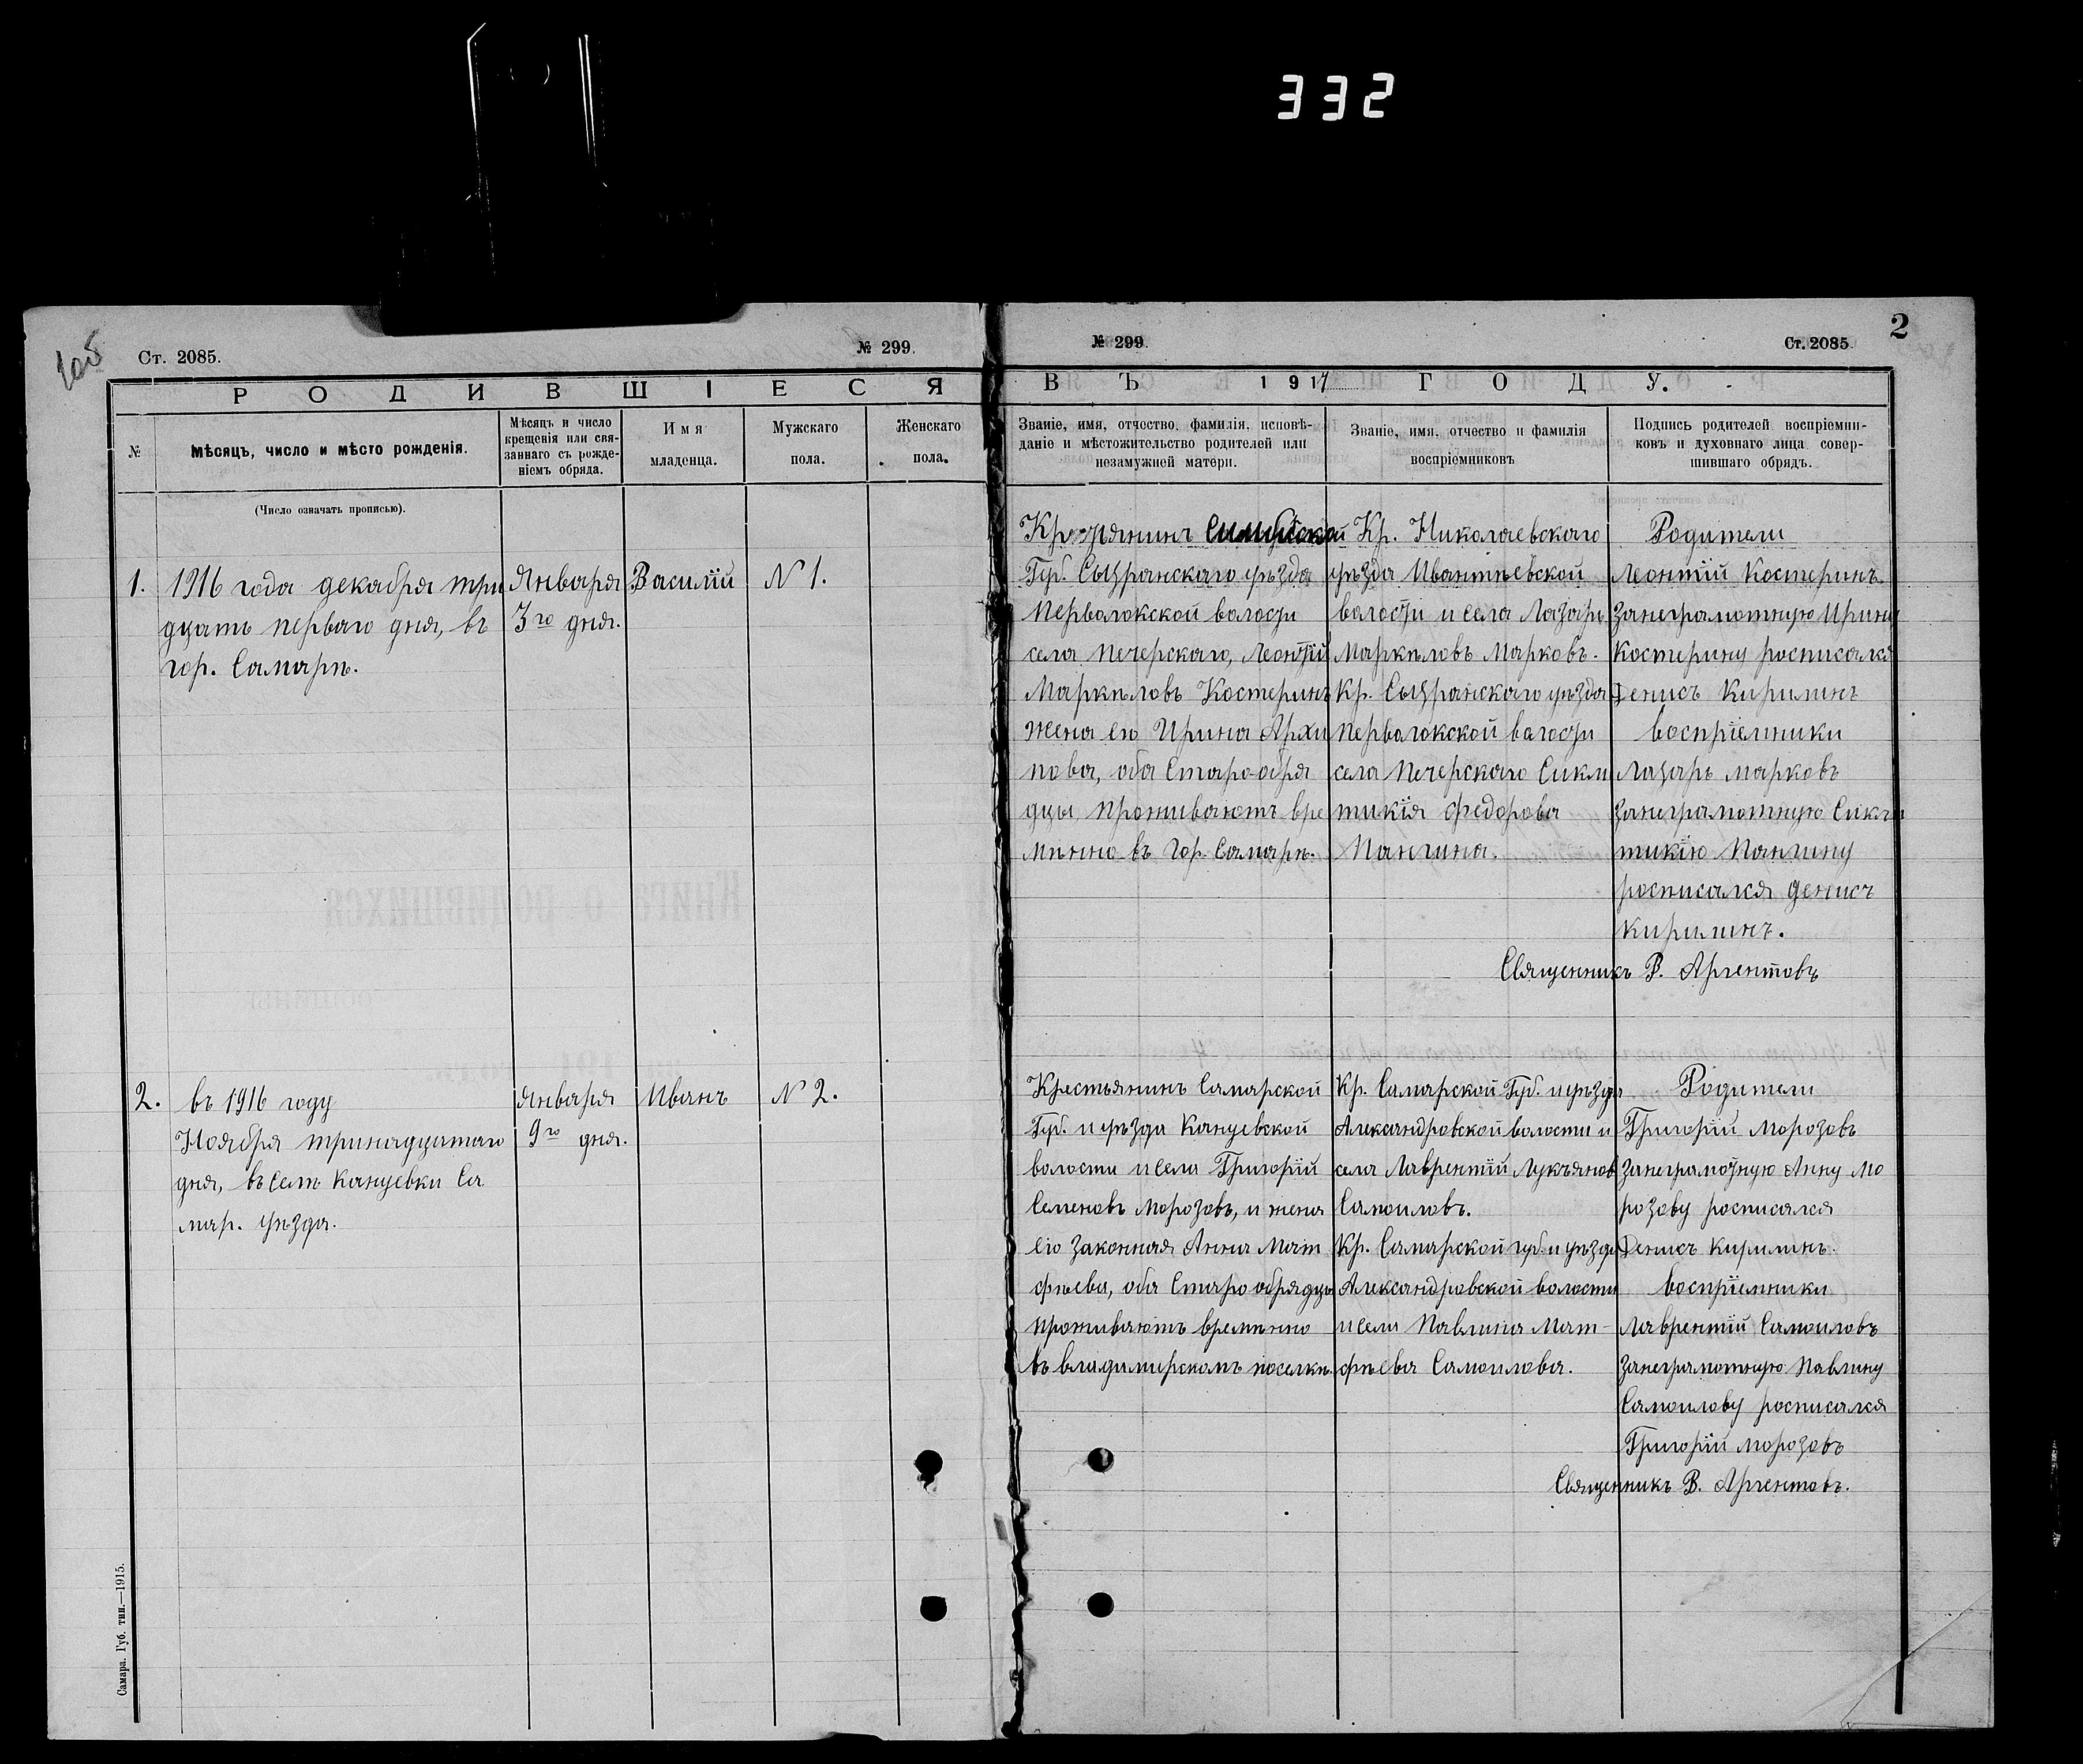 332
2
Ст. 2085.
№ 299.
№ 299.
Ст. 2085.
РОДИВШІЕСЯ
ВЪ 1917 ГОДУ.
№
Мѣсяцъ, число и мѣсто рожденія.
Мѣсяцъ и число
крещенія или свя-
заннаго съ рожде-
ніемъ обряда.
Имя
младенца.
Мужскаго
пола.
Женскаго
пола.
Званіе, имя, отчество, фамилія, исповѣ-
даніе и мѣстожительство родителей или
незамужней матери.
Званіе, имя, отчество и фамилія
воспріемниковъ
Подпись родителей воспріемни-
ковъ и духовнаго лица совер-
шившаго обрядъ.
(Число означать прописью).
1.
1916 года декабря три
дцать перваго дня, въ
гор. Самарѣ.
Января
3го дня.
Василій
№ 1.
Крестьянинъ Симбирской
Губ. Сызранскаго уѣзда
Переволокской волости
села Печерскаго, Леонтій
Маркѣловъ Костеринъ
жена его Ирина Архи
пова, оба Старо-обря
дцы проживаютъ вре
мѣнно въ Гор. Самарѣ.
Кр. Николаевскаго
уѣзда Ивантѣевской
волости и села Лазарь
Маркѣловъ Марковъ.
Кр. Сызранскаго уѣзда
Переволокской волости
села Печерскаго Сикли
тикія Федорова
Манчина.
Родители
Леонтій Костеринъ.
Занеграмотную Ирину
Костерину росписался
Денисъ Кирилинъ
воспріемники
Лазарь Марковъ
занеграмотную Сикли
тикію Манчину
росписался Денисъ
Кирилинъ.
Священникъ В. Аргентовъ
2.
въ 1916 году
Ноября тринадцатаго
дня, въ селѣ Кануевки Са
мар. уѣзда.
Января
9го дня.
Иванъ
№ 2.
Крестьянинъ Самарской
Губ. и уѣзда Кануевской
волости и села Григорій
Семеновъ Морозовъ, и жена
его законная Анна Мат
фѣева, оба Старо обрядцы
проживаютъ времѣнно
въ владимирскомъ поселкѣ.
Кр. Самарской Губ. и уѣзда
Александровской волости и
села Лаврентій Лукъяновъ
Самойловъ.
Кр. Самарской губ. и уѣзда
Александровской волости
и села Павлина Мат-
фѣева Самоилова.
Родители
Григорій Морозовъ
Занеграмотную Анну Мо
розову росписался
Денисъ Кирилинъ.
воспріемники
Лаврентій Самоиловъ
занеграмотную Павлину
Самоилову росписался
Григорій Морозовъ
Священникъ В. Аргентовъ.
Самара. Губ. тип.—1915.